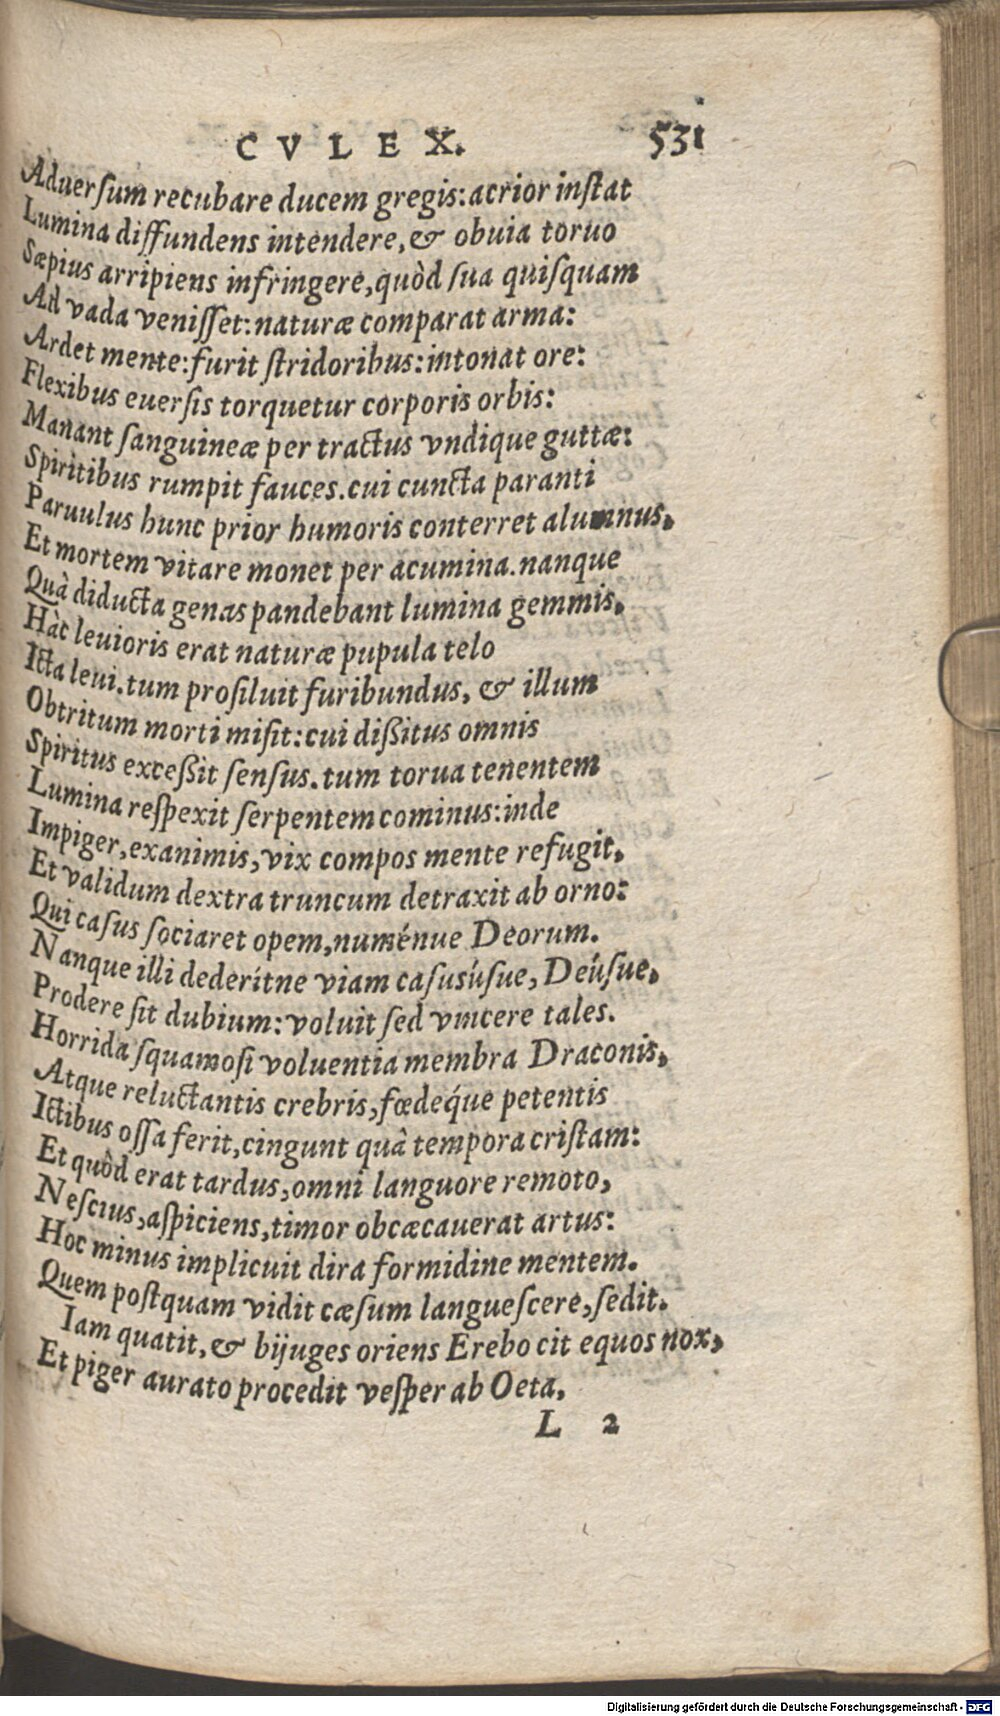 CVLEX. 531
Aduerſum recubare ducem gregis: acrior inſtat
Lumina diffundens intendere, & obuia toruo
Sæpius arripiens infringere, quòd ſua quiſquam
Ad vada veniſſet: naturæ comparat arma:
Ardet mente: furit ſtridoribus: intonat ore:
Flexibus euerſis torquetur corporis orbis:
Manant ſanguineæ per tractus vndique guttæ:
Spiritibus rumpit fauces. cui cuncta paranti
Paruulus hunc prior humoris conterret alumnus,
Et mortem vitare monet per acumina. nanque
Quà diducta genas pandebant lumina gemmis,
Hàc leuioris erat naturæ pupula telo
Icta leui. tum proſiluit furibundus, & illum
Obtritum morti miſit: cui dißitus omnis
Spiritus exceßit ſenſus. tum torua tenentem
Lumina reſpexit ſerpentem cominus: inde
Impiger, exanimis, vix compos mente refugit,
Et validum dextra truncum detraxit ab orno:
Qui caſus ſociaret opem, numénue Deorum.
Nanque illi dederítne viam caſusúſue, Deúſue,
Prodere ſit dubium: voluit ſed vincere tales.
Horrida ſquamoſi voluentia membra Draconis,
Atque reluctantis crebris, fœdeq́ue petentis
Ictibus oſſa ferit, cingunt quà tempora criſtam:
Et quòd erat tardus, omni languore remoto,
Neſcius, aſpiciens, timor obcæcauerat artus:
Hoc minus implicuit dira formidine mentem.
Quem poſtquam vidit cæſum langueſcere, ſedit.
Iam quatit, & bijuges oriens Erebo cit equos nox,
Et piger aurato procedit veſper ab Oeta,
L 2
Digitalisierung gefördert durch die Deutsche Forschungsgemeinschaft - DFG